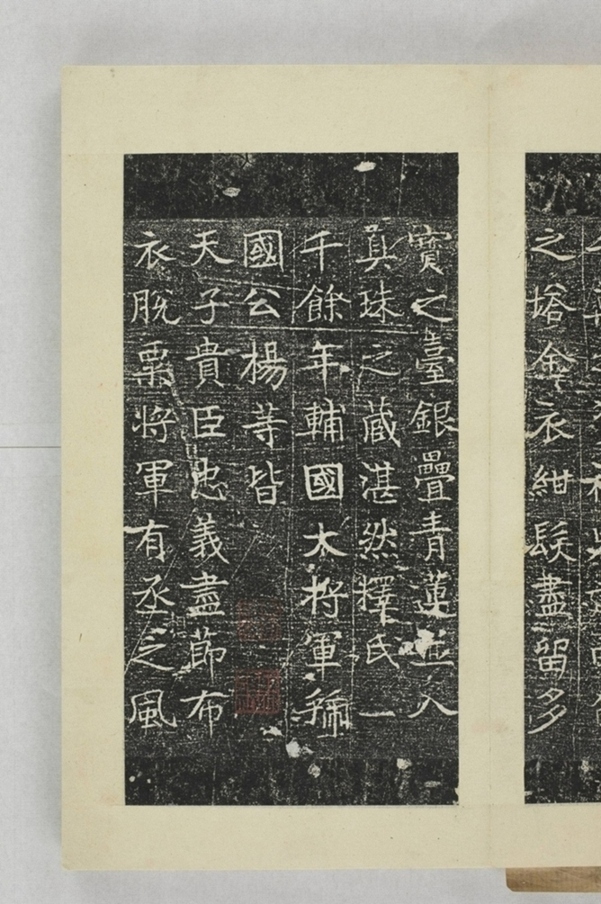 之塔金衣紺髮盡留多
寶之臺銀疊青蓮並入
真珠之藏湛然釋氏一
千餘年輔國大將軍虢
國公楊等皆
天子貴臣忠義盡節布
衣脫粟將軍有丞相之風